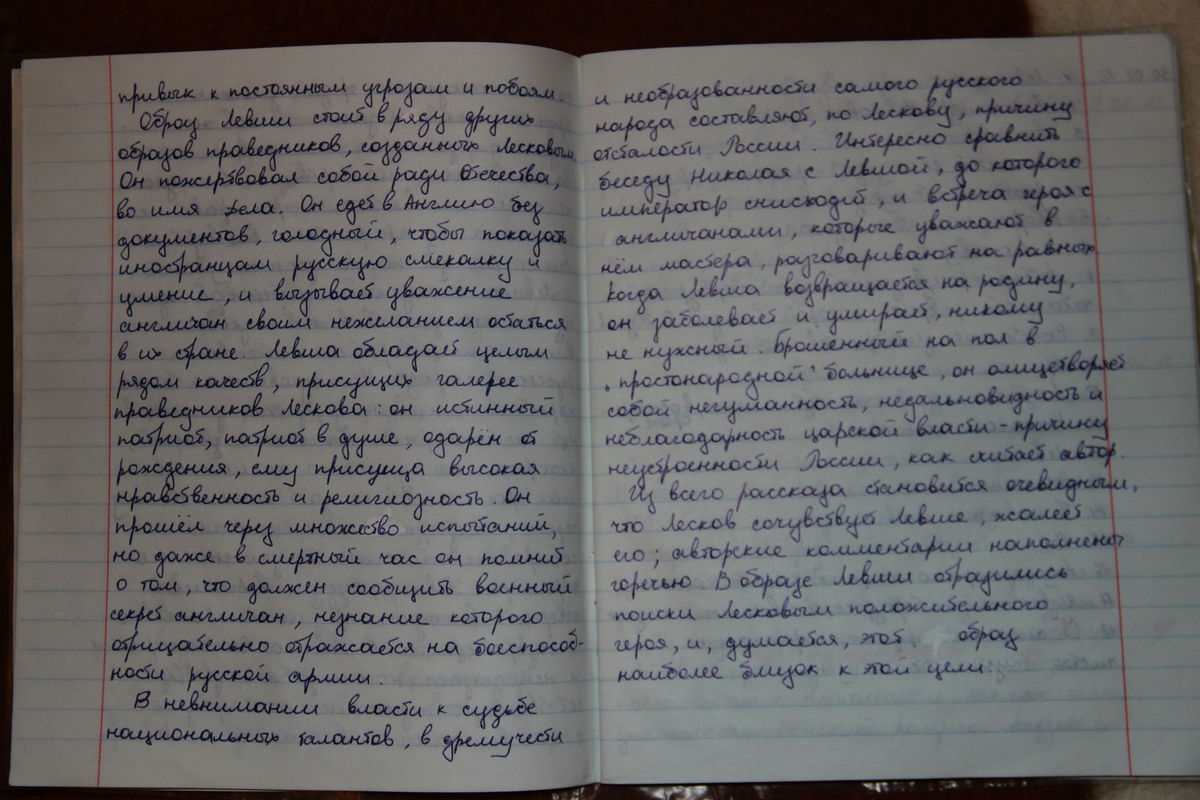 привык к постоянным угрозам и побоям.
Образ Левши стоит в ряду других
образов праведников, созданных Лесковым.
Он пожертвовал собой ради Отечества,
во имя Дела. Он едет в Англию без
документов, голодный, чтобы показать
иностранцам русскую смекалку и
умение, и вызывает уважение
англичан своим нежеланием остаться
в их стране. Левша обладает целым
рядом качеств, присущих галерее
праведников Лескова: он истинный
патриот, патриот в душе, одарён от
рождения, ему присуща высокая
нравственность и религиозность. Он
прошёл через множество испытаний,
но даже в смертный час он помнит
о том, что должен сообщить военный
секрет англичан, незнание которого
отрицательно отражается на боеспособ-
ности русской армии.
В невнимании власти к судьбе
национальных талантов, в дремучести
и необразованности самого русского
народа составляют, по Лескову, причину
отсталости России. Интересно сравнить
беседу Николая с Левшой, до которого
император снисходит, и встреча героя с
англичанами, которые уважают в
нём мастера, разговаривают на равных.
Когда Левша возвращается на родину,
он заболевает и умирает, никому
не нужный. Брошенный на пол в
„простонародной" больнице, он олицетворяет
собой негуманность, недальновидность и
неблагодарность царской власти - причину
неустроенности России, как считает автор.
Из всего рассказа становится очевидным,
что Лесков сочувствует Левше, жалеет
его; авторские комментарии наполнены
горечью. В образе Левши отразились
поиски Лесковым положительного
героя, и, думается, этот образ
наиболее близок к этой цели.